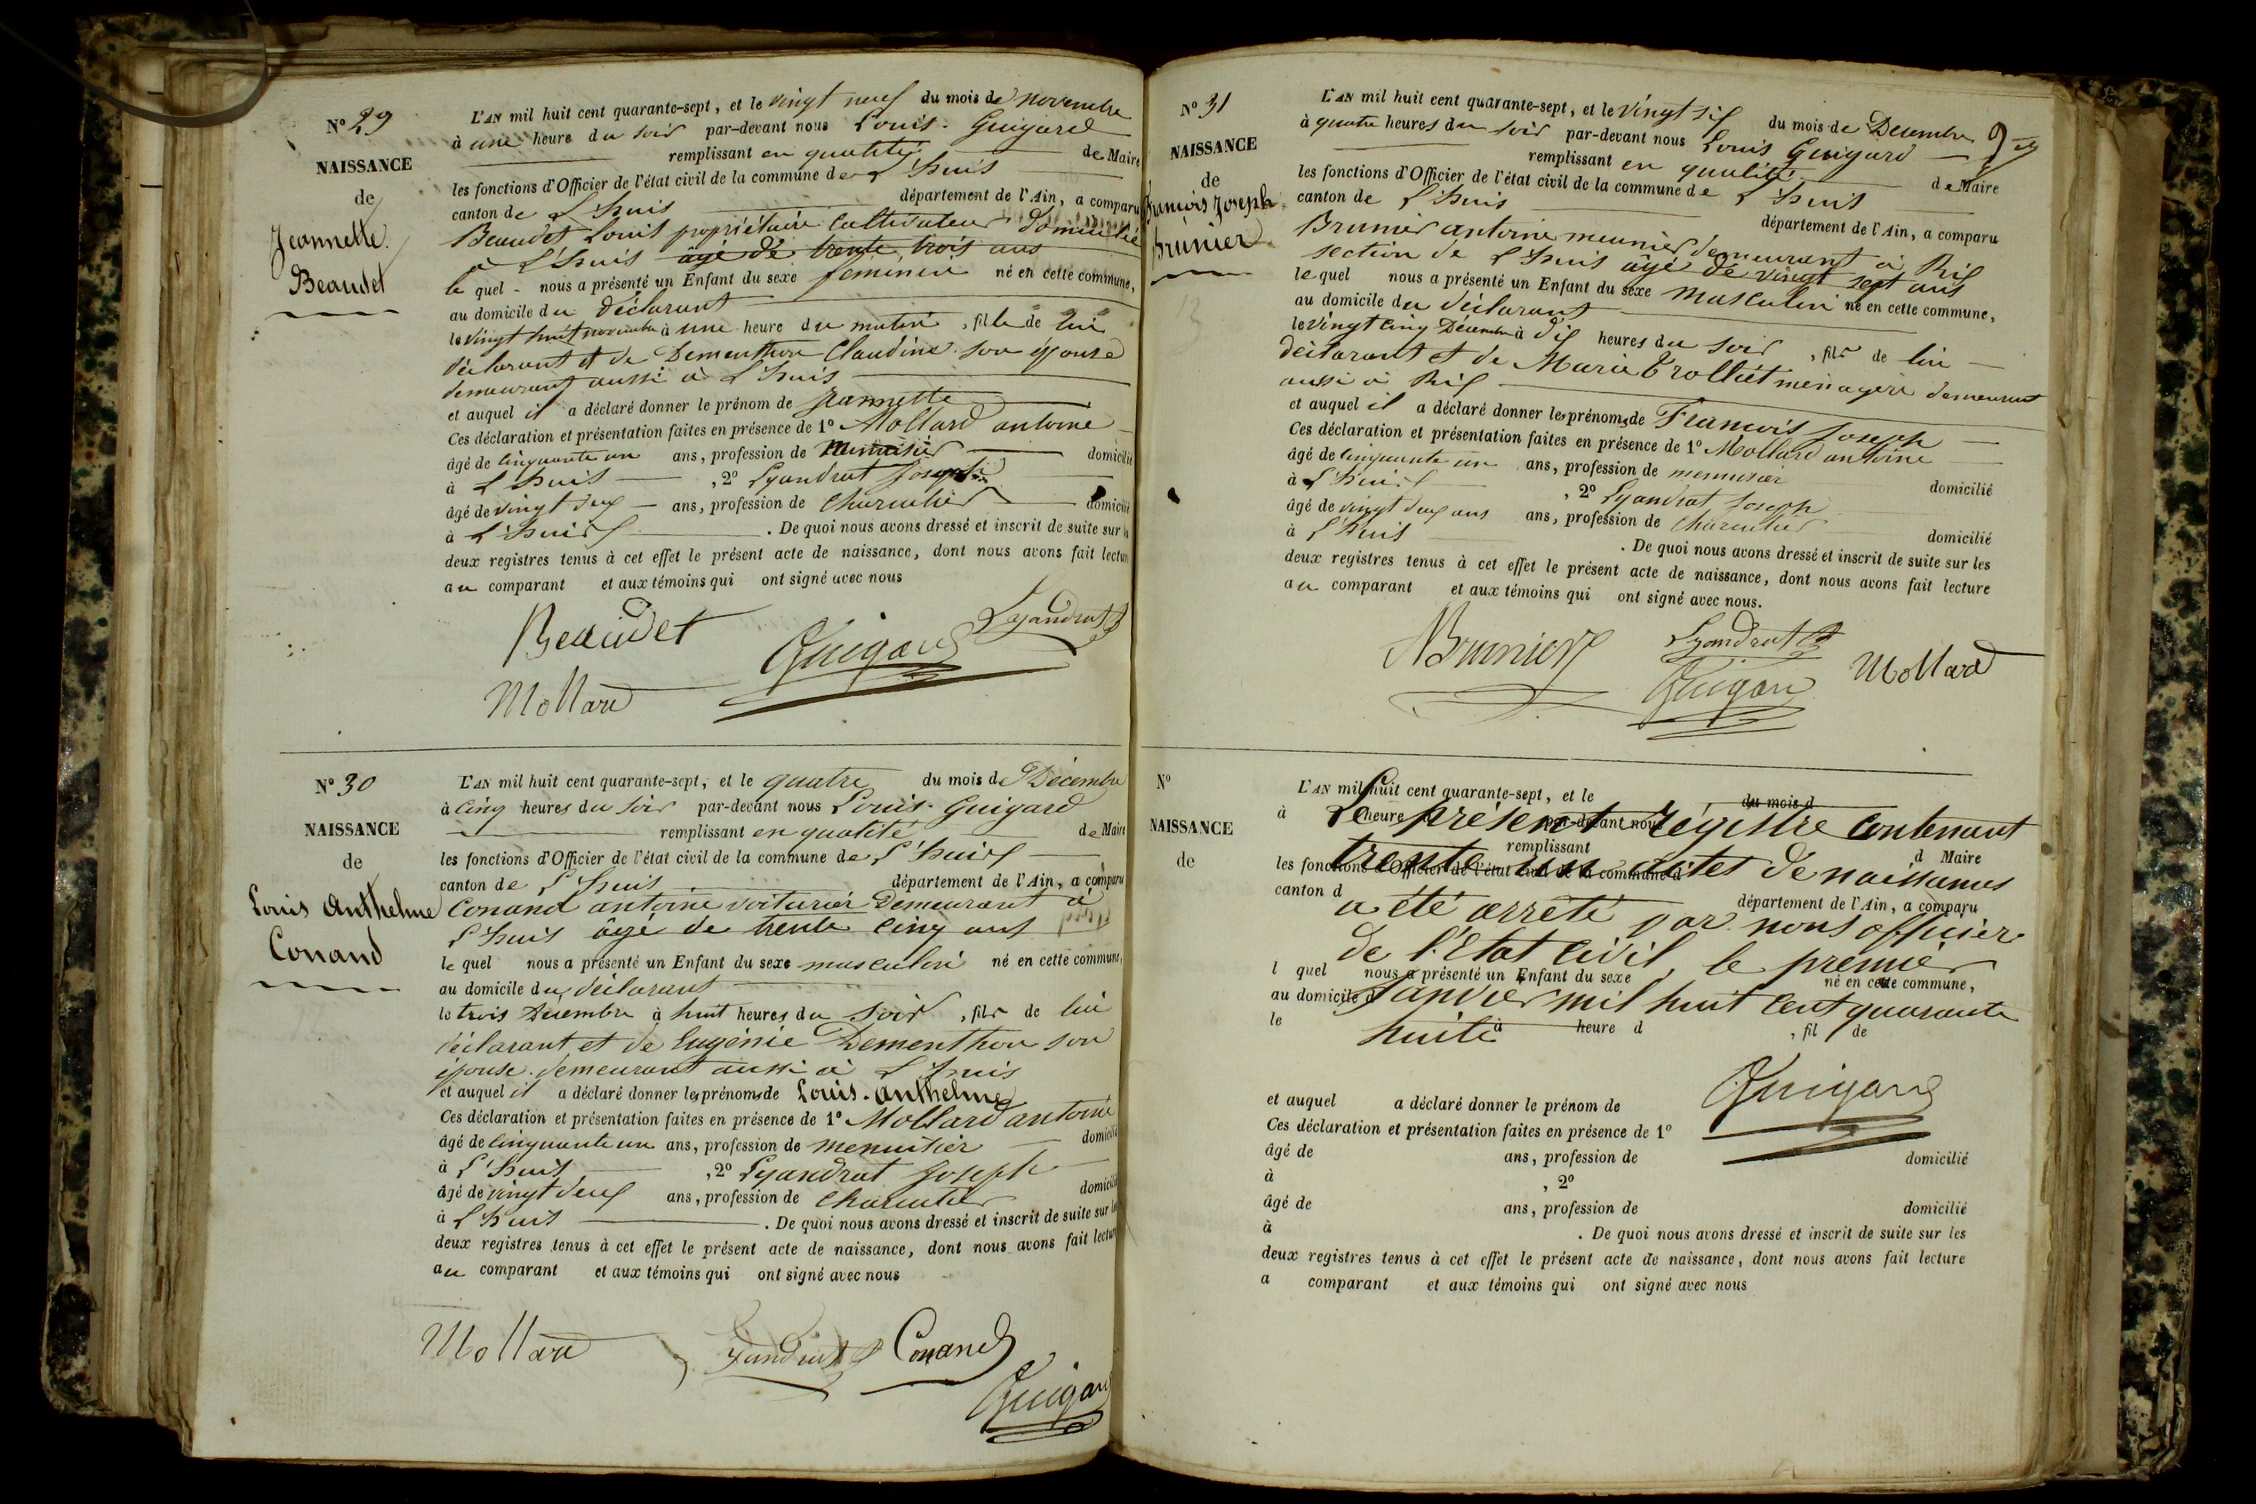 N° 29
NAISSANCE
de
Jeannette
Beaudet
L'AN mil huit cent quarante-sept, et le vingt neuf du mois de novembre
à une heure du soir par-devant nous Louis Guigard
remplissant en qualité de Maire
les fonctions d'Officier de l'état civil de la commune de L'huis
canton de L'huis département de l'Ain, a comparu
Beaudet Louis propriétaire cultivateur domicilié
à L'huis âgé de trente trois ans
le quel nous a présenté un Enfant du sexe feminin né en cette commune,
au domicile du déclarant
le vingt huit novembre à une heure du matin, fille de lui
déclarant et de Dementhon Claudine son épouse
demeurant aussi à L'huis
et auquel il a déclaré donner le prénom de Jeannette
Ces déclaration et présentation faites en présence de 1° Mollard antoine
âgé de cinquante un ans, profession de Menuisier domicilié
à L'huis, 2° Lyandrat Joseph
âgé de vingt deux ans, profession de Charcutier domicilié
à L'huis. De quoi nous avons dressé et inscrit de suite sur les
deux registres tenus à cet effet le présent acte de naissance, dont nous avons fait lecture
au comparant et aux témoins qui ont signé avec nous
Beaudet Guigard Lyandrat
Mollard
N° 30
NAISSANCE
de
Louis Anthelme
Conand
L'AN mil huit cent quarante-sept, et le quatre du mois de Décembre
à cinq heures du soir par-devant nous Louis Guigard
remplissant en qualité de Maire
les fonctions d'Officier de l'état civil de la commune de L'huis
canton de L'huis département de l'Ain, a comparu
Conand antoine voiturier demeurant à
L'huis âgé de trente cinq ans
le quel nous a présenté un Enfant du sexe masculin né en cette commune,
au domicile du déclarant
le trois Décembre à huit heures du soir, fils de lui
déclarant et de Eugénie Dementhon son
épouse demeurant aussi à L'huis
et auquel il a déclaré donner les prénoms de Louis. Anthelme
Ces déclaration et présentation faites en présence de 1° Mollard antoine
âgé de cinquante un ans, profession de menuisier domicilié
à L'huis, 2° Lyandrat Joseph
âgé de vingt deux ans, profession de Charcutier domicilié
à L'huis. De quoi nous avons dressé et inscrit de suite sur les
deux registres tenus à cet effet le présent acte de naissance, dont nous avons fait lecture
au comparant et aux témoins qui ont signé avec nous
Mollard Lyandrat Conand
Guigard
N° 31
NAISSANCE
de
francois Joseph
Brunier
L'AN mil huit cent quarante-sept, et le vingt six du mois de Décembre
à quatre heures du soir par-devant nous Louis Guigard
remplissant en qualité de Maire
les fonctions d'Officier de l'état civil de la commune de L'huis
canton de L'huis département de l'Ain, a comparu
Brunier antoine meunier demeurant à Rix
section de L'huis âgé de vingt sept ans
le quel nous a présenté un Enfant du sexe masculin né en cette commune,
au domicile du déclarant
le vingt cinq Décembre à dix heures du soir, fils de lui
déclarant et de Marie Trolliet ménagère demeurant
aussi à Rix
et auquel il a déclaré donner les prénoms de François Joseph
Ces déclaration et présentation faites en présence de 1° Mollard antoine
âgé de cinquante un ans, profession de menuisier domicilié
à L'huis, 2° Lyandrat Joseph
âgé de vingt deux ans ans, profession de Charcutier domicilié
à L'huis. De quoi nous avons dressé et inscrit de suite sur les
deux registres tenus à cet effet le présent acte de naissance, dont nous avons fait lecture
au comparant et aux témoins qui ont signé avec nous.
Brunier Lyandrat Mollard
Guigard
N°
NAISSANCE
de
L'AN mil huit cent quarante-sept, et le du mois d
à heure d par-devant nous
remplissant d Maire
les fonctions d'Officier de l'état civil de la commune d
canton d département de l'Ain, a comparu
Le présent régistre contenant
trente un actes de naissances
a été arrêté par nous officier
de l'Etat civil, le premier
Janvier mil huit cent quarante
huit.
l quel nous a présenté un Enfant du sexe né en cette commune,
au domicile d
le à heure d , fil de
Guigard
et auquel a déclaré donner le prénom de
Ces déclaration et présentation faites en présence de 1°
âgé de ans, profession de domicilié
à , 2°
âgé de ans, profession de domicilié
à . De quoi nous avons dressé et inscrit de suite sur les
deux registres tenus à cet effet le présent acte de naissance, dont nous avons fait lecture
a comparant et aux témoins qui ont signé avec nous